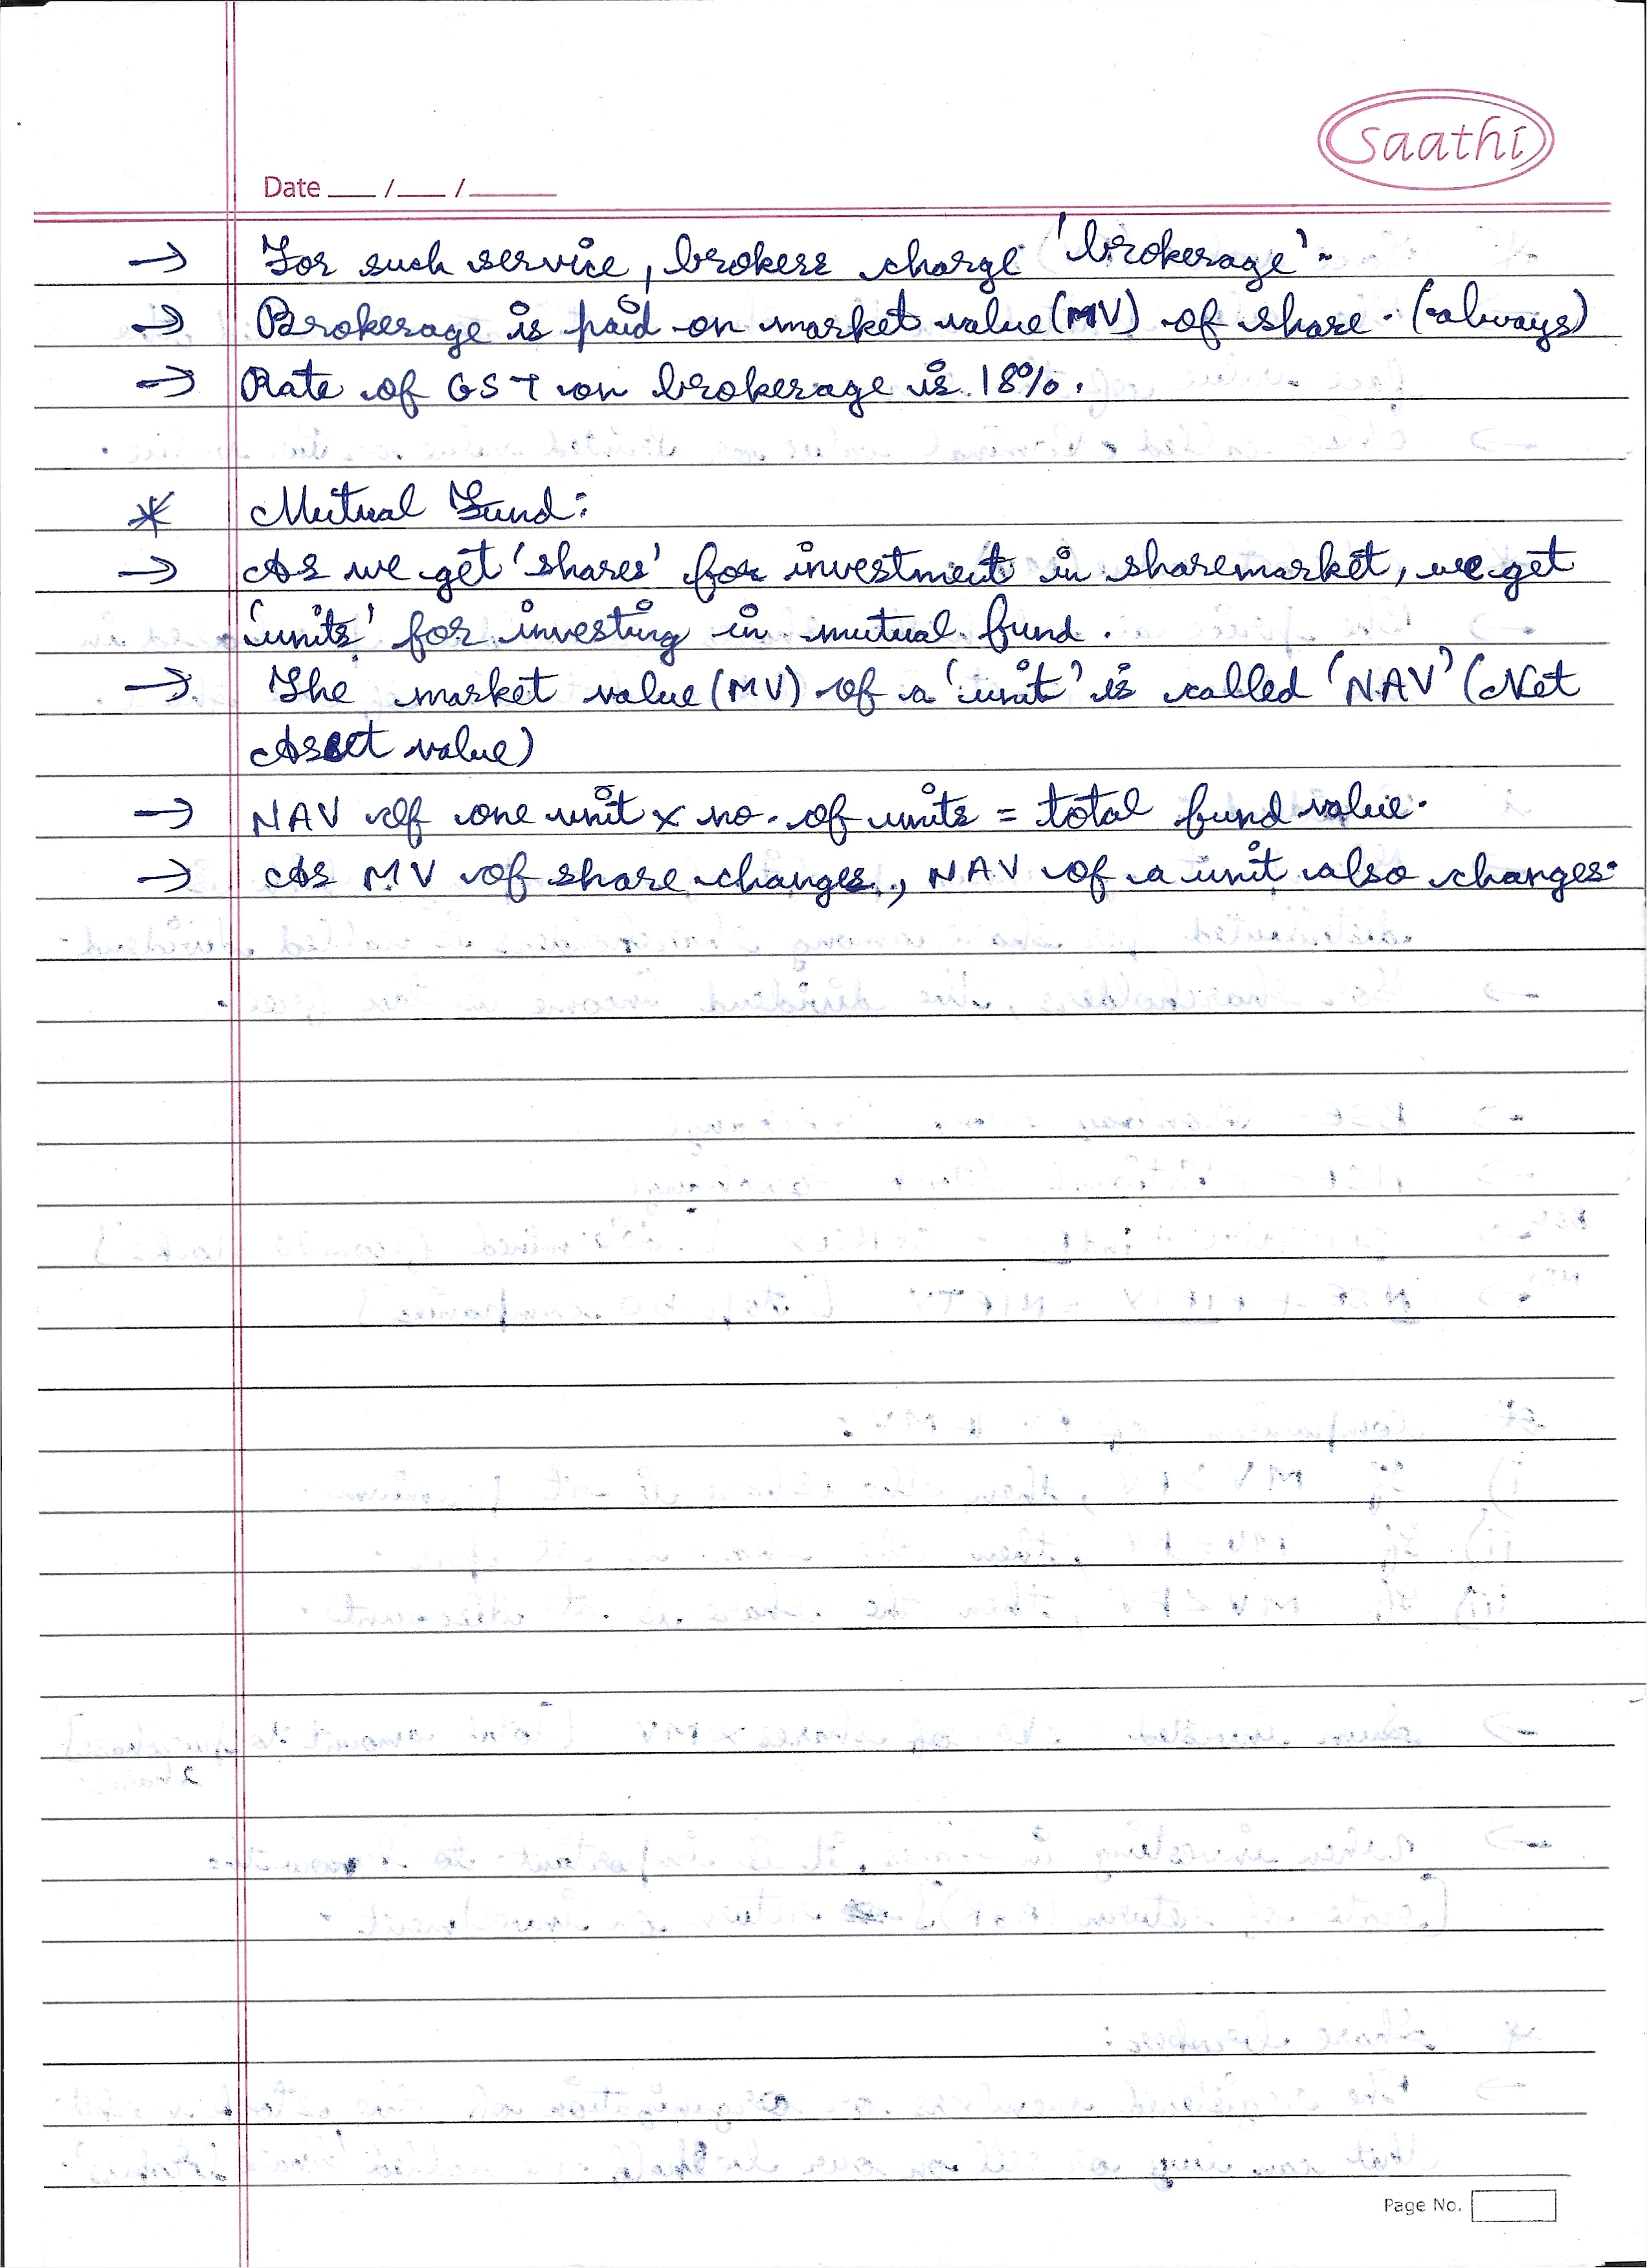 saathi
Date ___ / ___ / ______
→ For such service, brokers charge 'brokerage'.
→ Brokerage is paid on market value (MV) of share. (always)
→ Rate of GST on brokerage is 18%.
* Mutual Fund:
→ As we get 'shares' for investment in sharemarket, we get
'units' for investing in mutual fund.
→ The market value (MV) of a 'unit' is called 'NAV' (Net
Asset value)
→ NAV of one unit x no. of units = total fund value.
→ As MV of share changes, NAV of a unit also changes.
Page No.